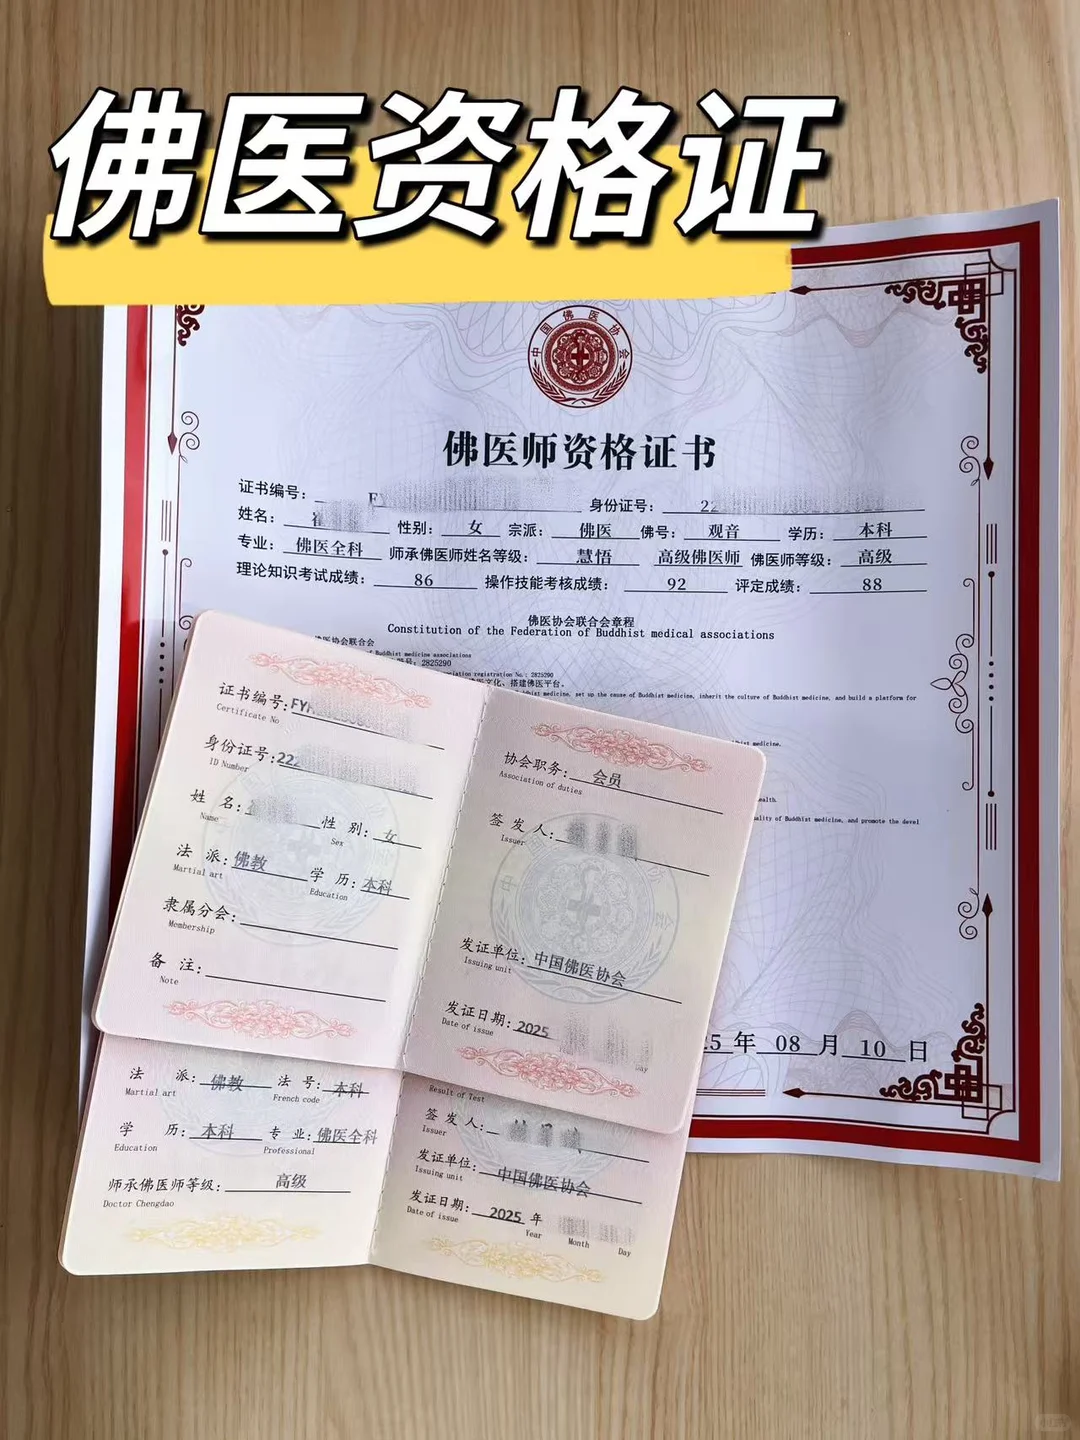 佛医资格证
中国佛医协会
佛医师资格证书
证书编号: FY 身份证号: 22
姓名: 性别: 女 宗派: 佛医 佛号: 观音 学历: 本科
专业: 佛医全科 师承佛医师姓名等级: 慧悟 高级佛医师 佛医师等级: 高级
理论知识考试成绩: 86 操作技能考核成绩: 92 评定成绩: 88
佛医协会联合会章程
Constitution of the Federation of Buddhist medical associations
佛医协会联合会
Buddhist medicine associations
2825290
registration No.: 2825290
医文化、搭建佛医平台。
medicine, set up the cause of Buddhist medicine, inherit the culture of Buddhist medicine, and build a platform for
medicine.
health.
quality of Buddhist medicine, and promote the devel
5 年 08 月 10 日
证书编号: FY
Certificate No
身份证号: 222
ID Number
姓 名: 性 别: 女
Name Sex
法 派: 佛教 学 历: 本科
Martial art Education
隶属分会:
Membership
备 注:
Note
协会职务: 会员
Association of duties
签 发 人:
Issuer
发证单位: 中国佛医协会
Issuing unit
发证日期: 2025
Date of issue
Day
法 派: 佛教 法 号: 本科
Martial art French code
学 历: 本科 专 业: 佛医全科
Education Professional
师承佛医师等级: 高级
Doctor Chengdao
Result of Test
签 发 人:
Issuer
发证单位: 中国佛医协会
Issuing unit
发证日期: 2025 年
Date of issue Year Month Day